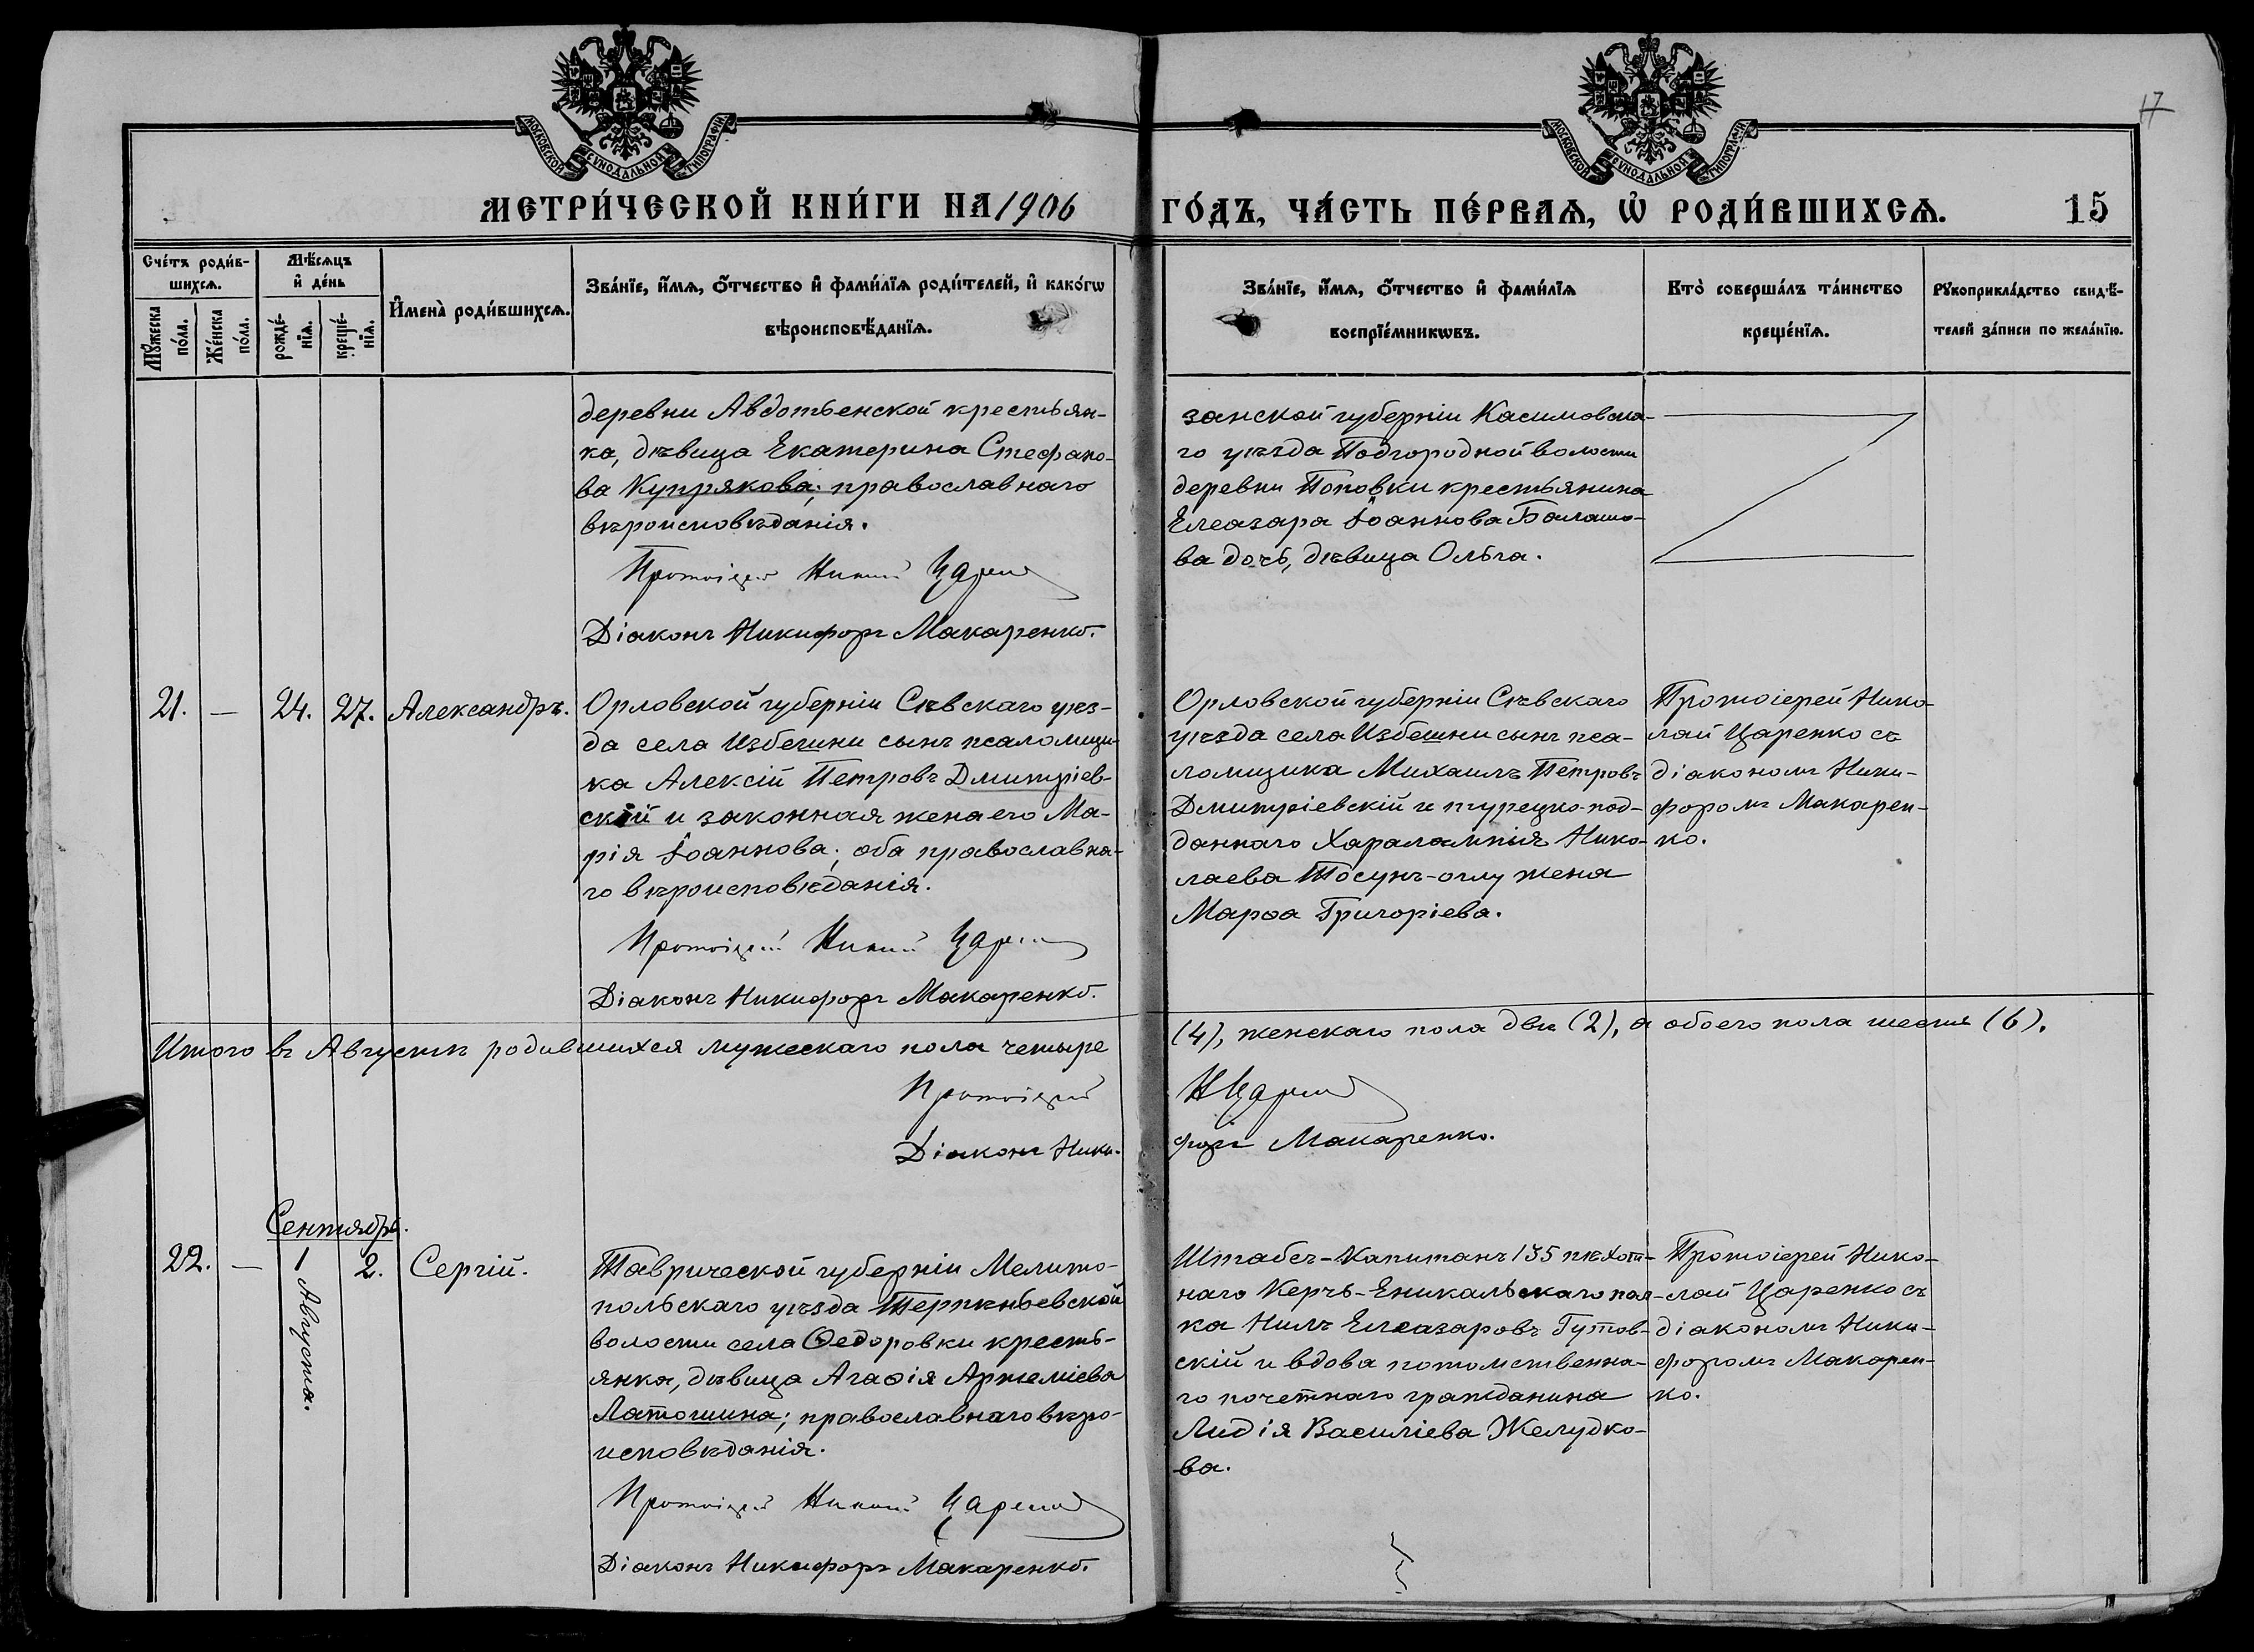 17
МОСКОВСКОЙ СѴНОДАЛЬНОЙ ТИПОГРАФІИ
МОСКОВСКОЙ СѴНОДАЛЬНОЙ ТИПОГРАФІИ
МЕТРИ́ЧЕСКОЙ КНИ́ГИ НА 1906
ГО́ДЪ, ЧА́СТЬ ПЕ́РВАѦ, Ѡ҆ РОДИ́ВШИХСѦ.
15
Сче́тъ роди́в-
шихсѧ.
Мꙋ́жеска
по́ла.
Же́нска
по́ла.
Мѣ́сѧцъ
и҆ де́нь
рожде́-
нїѧ.
креще́-
нїѧ.
И҆мена̀ роди́вшихсѧ.
Зва́нїе, и҆́мѧ, ѻ҆́тчество и҆ фами́лїѧ роди́телей, и҆ како́гѡ
вѣроисповѣ́данїѧ.
Зва́нїе, и҆́мѧ, ѻ҆́тчество и҆ фами́лїѧ
воспрїе́мникѡвъ.
Кто̀ соверша́лъ та́инство
креще́нїѧ.
Рꙋкоприкла́дство свидѣ́-
телей за́писи по жела́нїю.
деревни Авдотьенской крестьян-
ка, дѣвица Екатерина Стефано-
ва Купрякова; православнаго
вѣроисповѣданія.
Протоіерей Николай Царенко
Діаконъ Никифоръ Макаренко.
занской губерніи Касимовска-
го уѣзда Подгородной волости
деревни Поповки крестьянина
Елеазара Іоаннова Балашо-
ва дочь, дѣвица Ольга.
21. — 24. 27. Александръ.
Орловской губерніи Сѣвскаго уѣз-
да села Избешни сынъ псаломщи-
ка Алексій Петровъ Дмитріев-
скій и законная жена его Ма-
рія Іоаннова; оба православна-
го вѣроисповѣданія.
Протоіерей Николай Царенко
Діаконъ Никифоръ Макаренко.
Орловской губерніи Сѣвскаго
уѣзда села Избешни сынъ пса-
ломщика Михаилъ Петровъ
Дмитріевскій и турецко-под-
даннаго Харалампія Нико-
лаева Тосунъ-оглу жена
Марѳа Григоріева.
Протоіерей Нико-
лай Царенко съ
діакономъ Ники-
форомъ Макарен-
ко.
Итого въ Августѣ родившихся мужескаго пола четыре
(4), женскаго пола двѣ (2), а обоего пола шесть (6).
Протоіерей
Н Царенко
Діаконъ Ники-
форъ Макаренко.
Сентябрь.
22. — 1 Августа. 2. Сергій.
Таврической губерніи Мелито-
польскаго уѣзда Терпѣньевской
волости села Ѳедоровки кресть-
янка, дѣвица Агаѳія Артеміева
Латошина; православнаго вѣро-
исповѣданія.
Протоіерей Николай Царенко
Діаконъ Никифоръ Макаренко.
Штабсъ-Капитанъ 135 пѣхот-
наго Керчь-Еникальскаго пол-
ка Нилъ Елеазаровъ Гутов-
скій и вдова потомственна-
го почетнаго гражданина
Лидія Василіева Желудко-
ва.
Протоіерей Нико-
лай Царенко съ
діакономъ Ники-
форомъ Макарен-
ко.